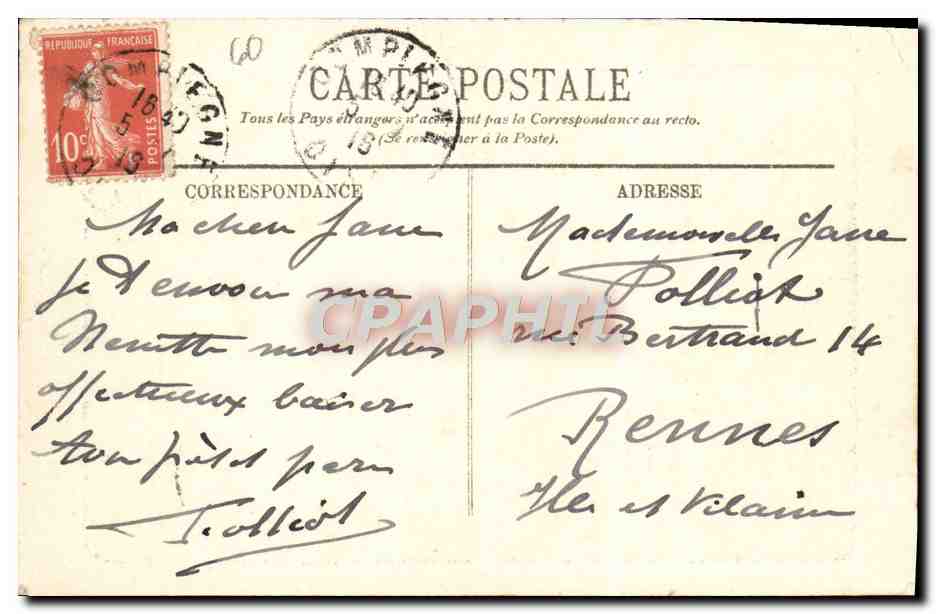 REPUBLIQUE FRANÇAISE
10c
POSTES
COMPIEGNE
18 40
5
60
COMPIEGNE
CARTE POSTALE
Tous les Pays étrangers n'acceptent pas la Correspondance au recto.
(Se renseigner à la Poste).
CORRESPONDANCE
Ma chere Jane
Je t'envoie ma
Nenette mon plus
affectueux baiser
ton père
Polliot
ADRESSE
Mademoiselle Jane
Polliot
rue Bertrand 14
Rennes
Ille et Vilaine
CPAPHIL